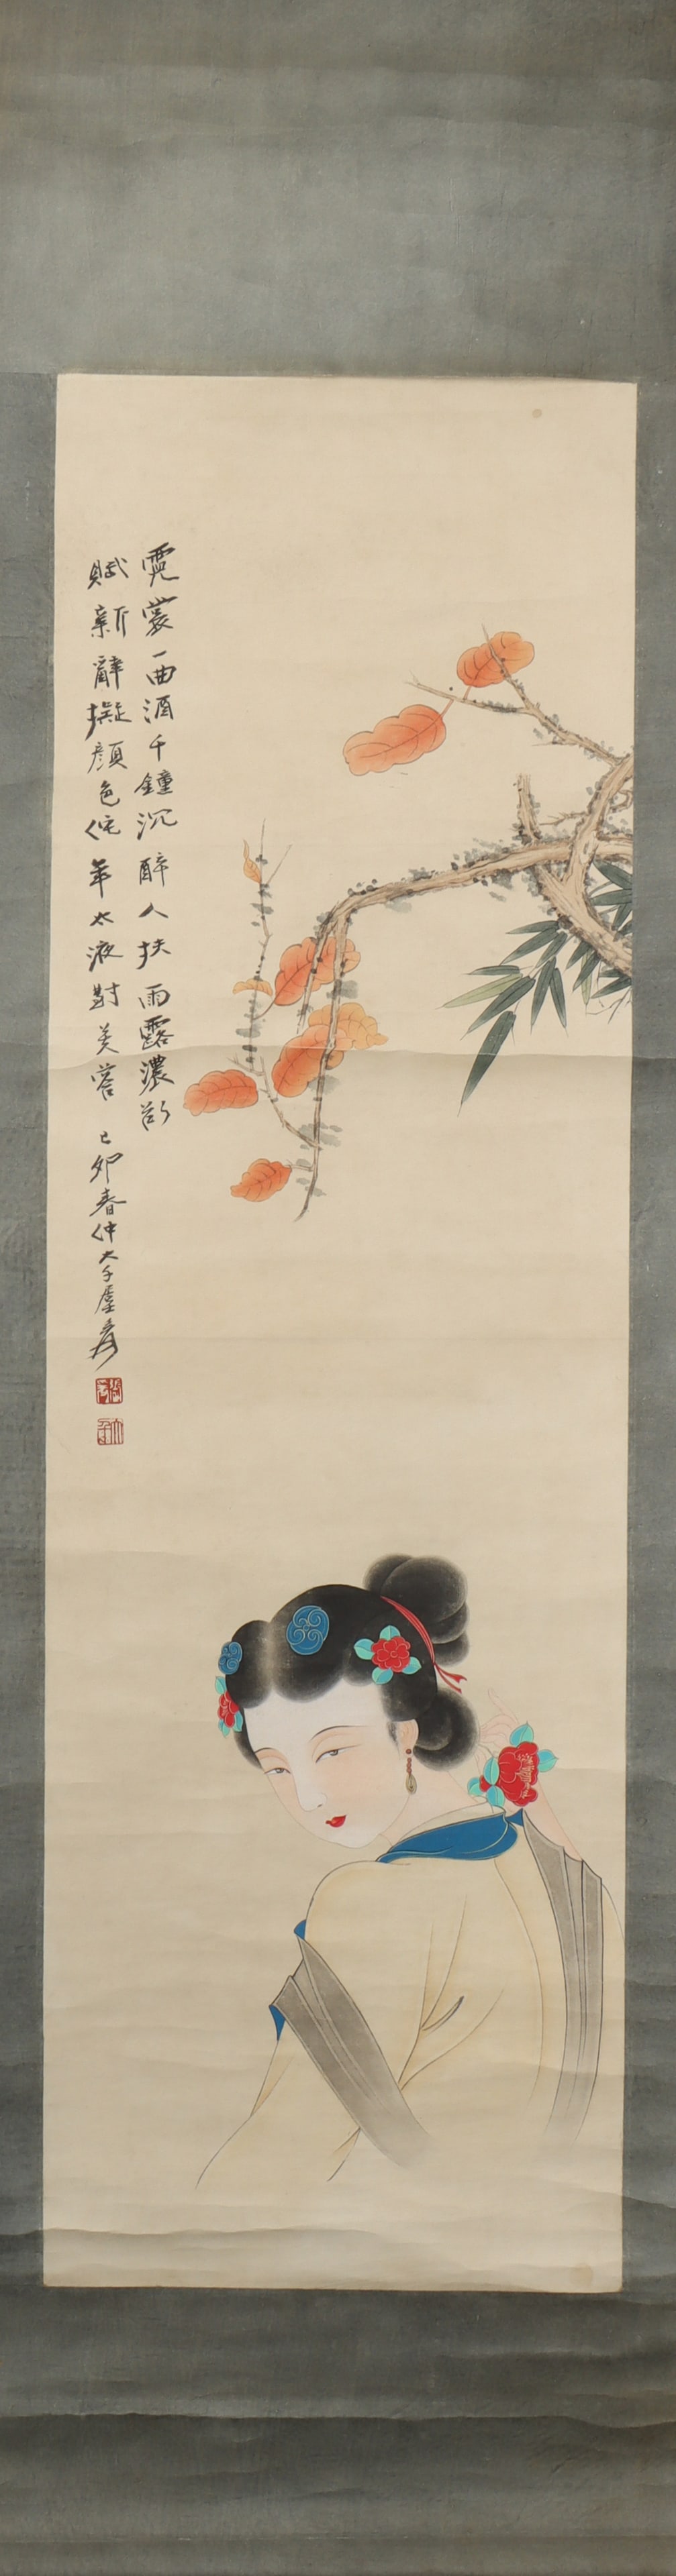 霓裳一曲酒千鐘沉醉人扶雨露濃欲
賦新辭擬顏色佗年太液對芙蓉 己卯春仲大千居士爰
張爰
大千